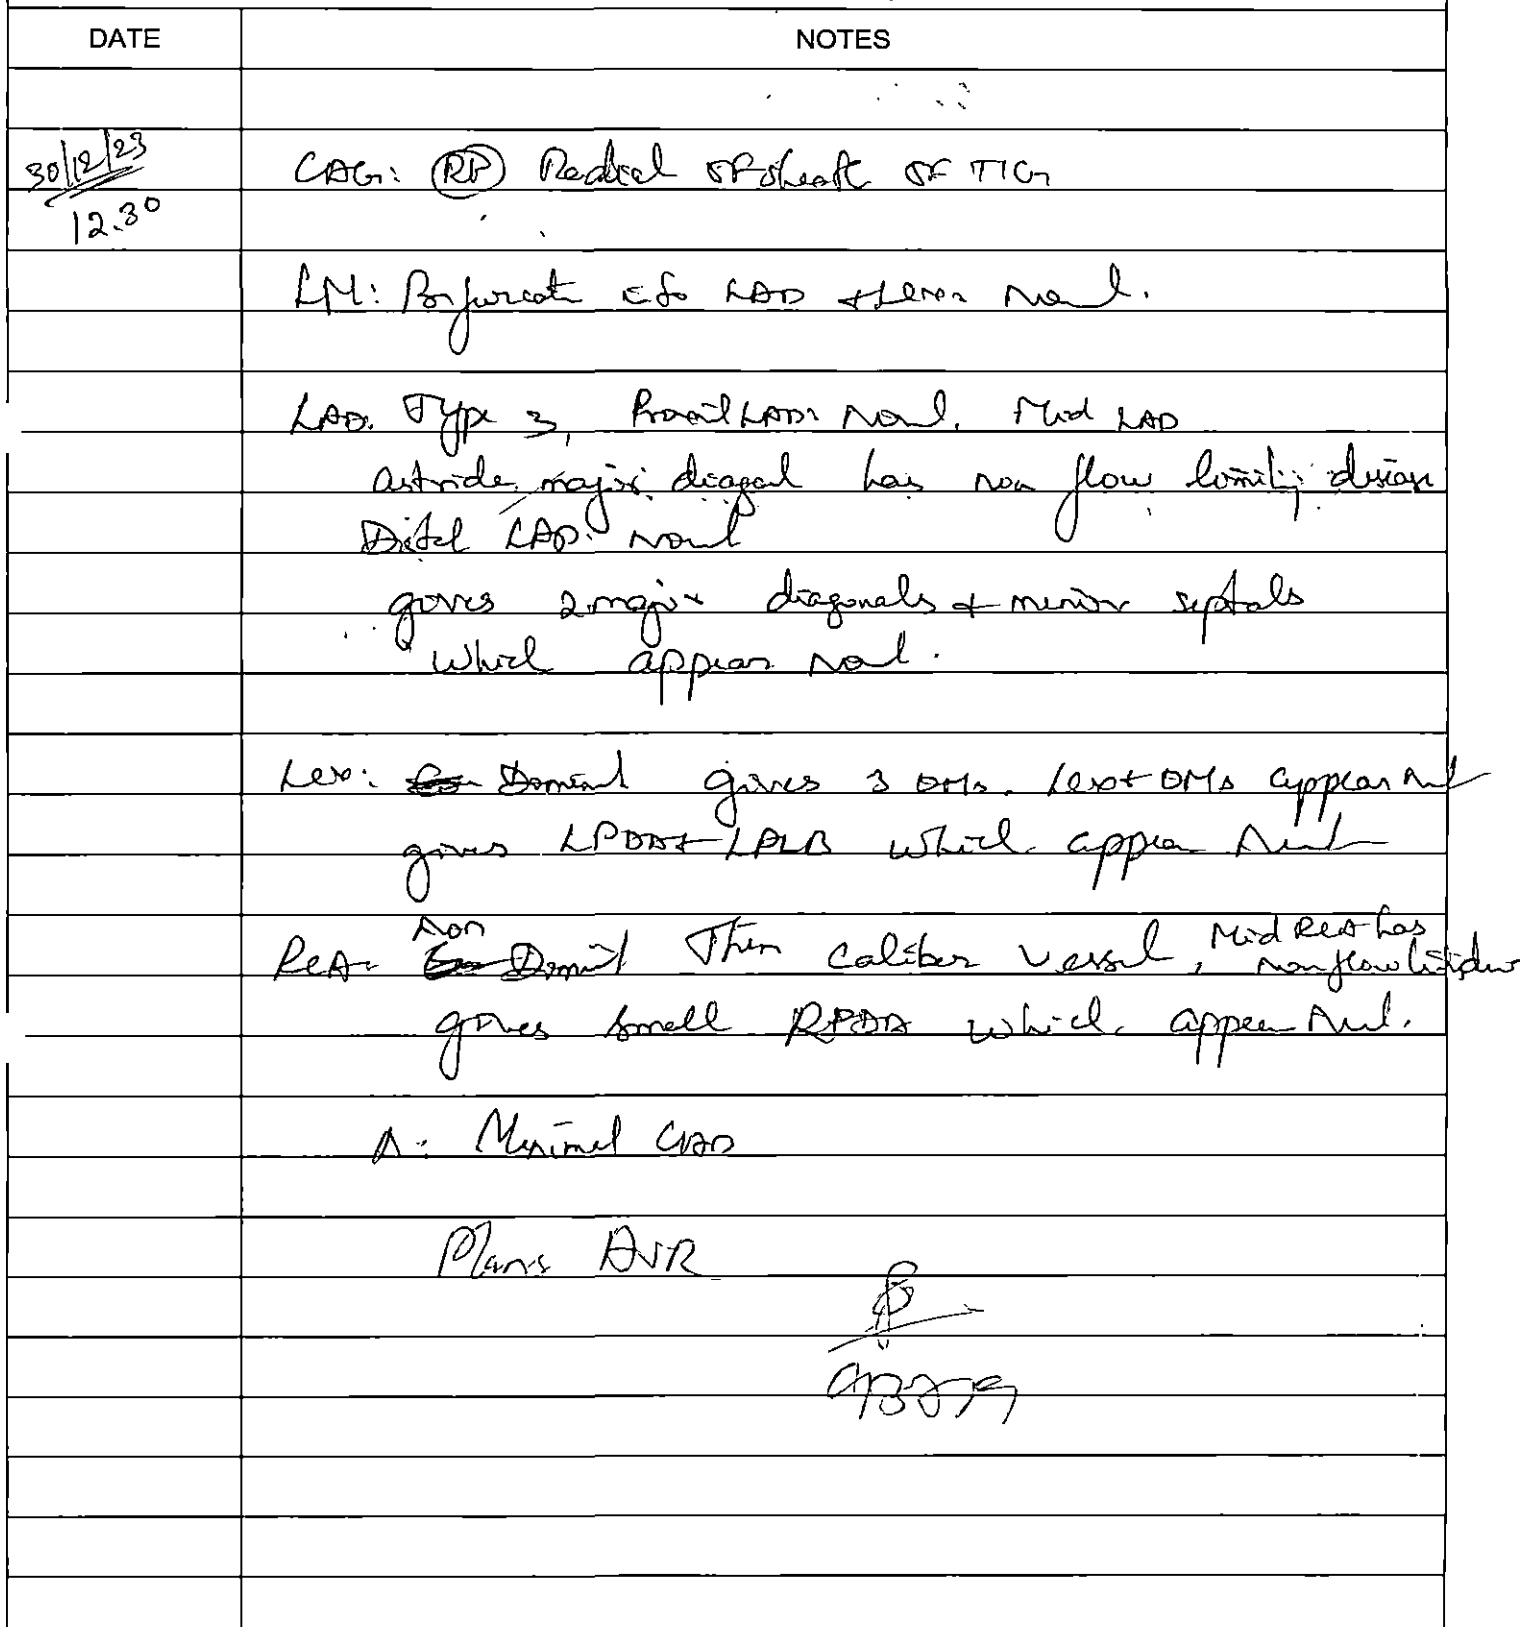 DATE NOTES
30/12/23 CAG: Radial 5F sheath 5F TIG
12.30
LM: Bifurcate LAD + Lcx Normal.
LAD: Type 3, Proximal LAD: Normal. Mid LAD
astride major diagonal has non flow limiting disease
Distal LAD: Normal
gives 2 major diagonals + minor septals
which appear normal.
Lcx: Dominant gives 3 OMs. Lcx + OMs appear
gives LPDA + LPLB which appear
Non Mid RCA has
RCA: Dominant Thin caliber vessel, non flow
gives small RPDA which appear
Minimal CAD
Plan: AVR